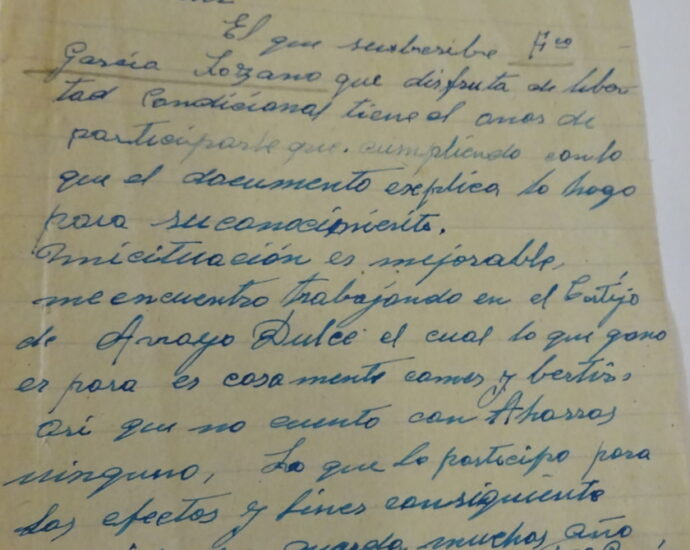 El que suxbcribe Fco
García Lozzano que disfruta de liber
tad Condicional tiene el onos de
participarle que. cumpliendo con lo
que el documento explica lo hago
para su conocimiento.
mi cituación es mejorable,
me encuentro trabajando en el Cortijo
de Arrayo Dulce el cual lo que gano
es para es casamente comer y bertir
así que no cuento con Aharros
ninguno, Lo que lo participo para
los efectos y fines consiguiente
guarde muchos año